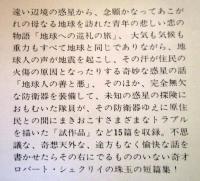 遠い辺境の惑星から、念願かなってあこが
れの母なる地球を訪れた青年の悲しい恋の
物語「地球への巡礼の旅」、大気も気候も
重力もすべて地球と同じでありながら、地
球人の声が地震を起こし、その汗が住民の
火傷の原因となったりする奇妙な惑星の話
「地球人の善と悪」、そのほか、完全無欠
な防衛器を装備して、未知の惑星の探険に
おもむいた隊員が、その防衛器ゆえに原住
民との間にまきおこすさまざまなトラブル
を描いた「試作品」など15篇を収録。不思
議な、奇想天外な、途方もなく愉快な話を
書かせたらその右にでるもののいない奇才
ロバート・シェクリイの珠玉の短篇集!